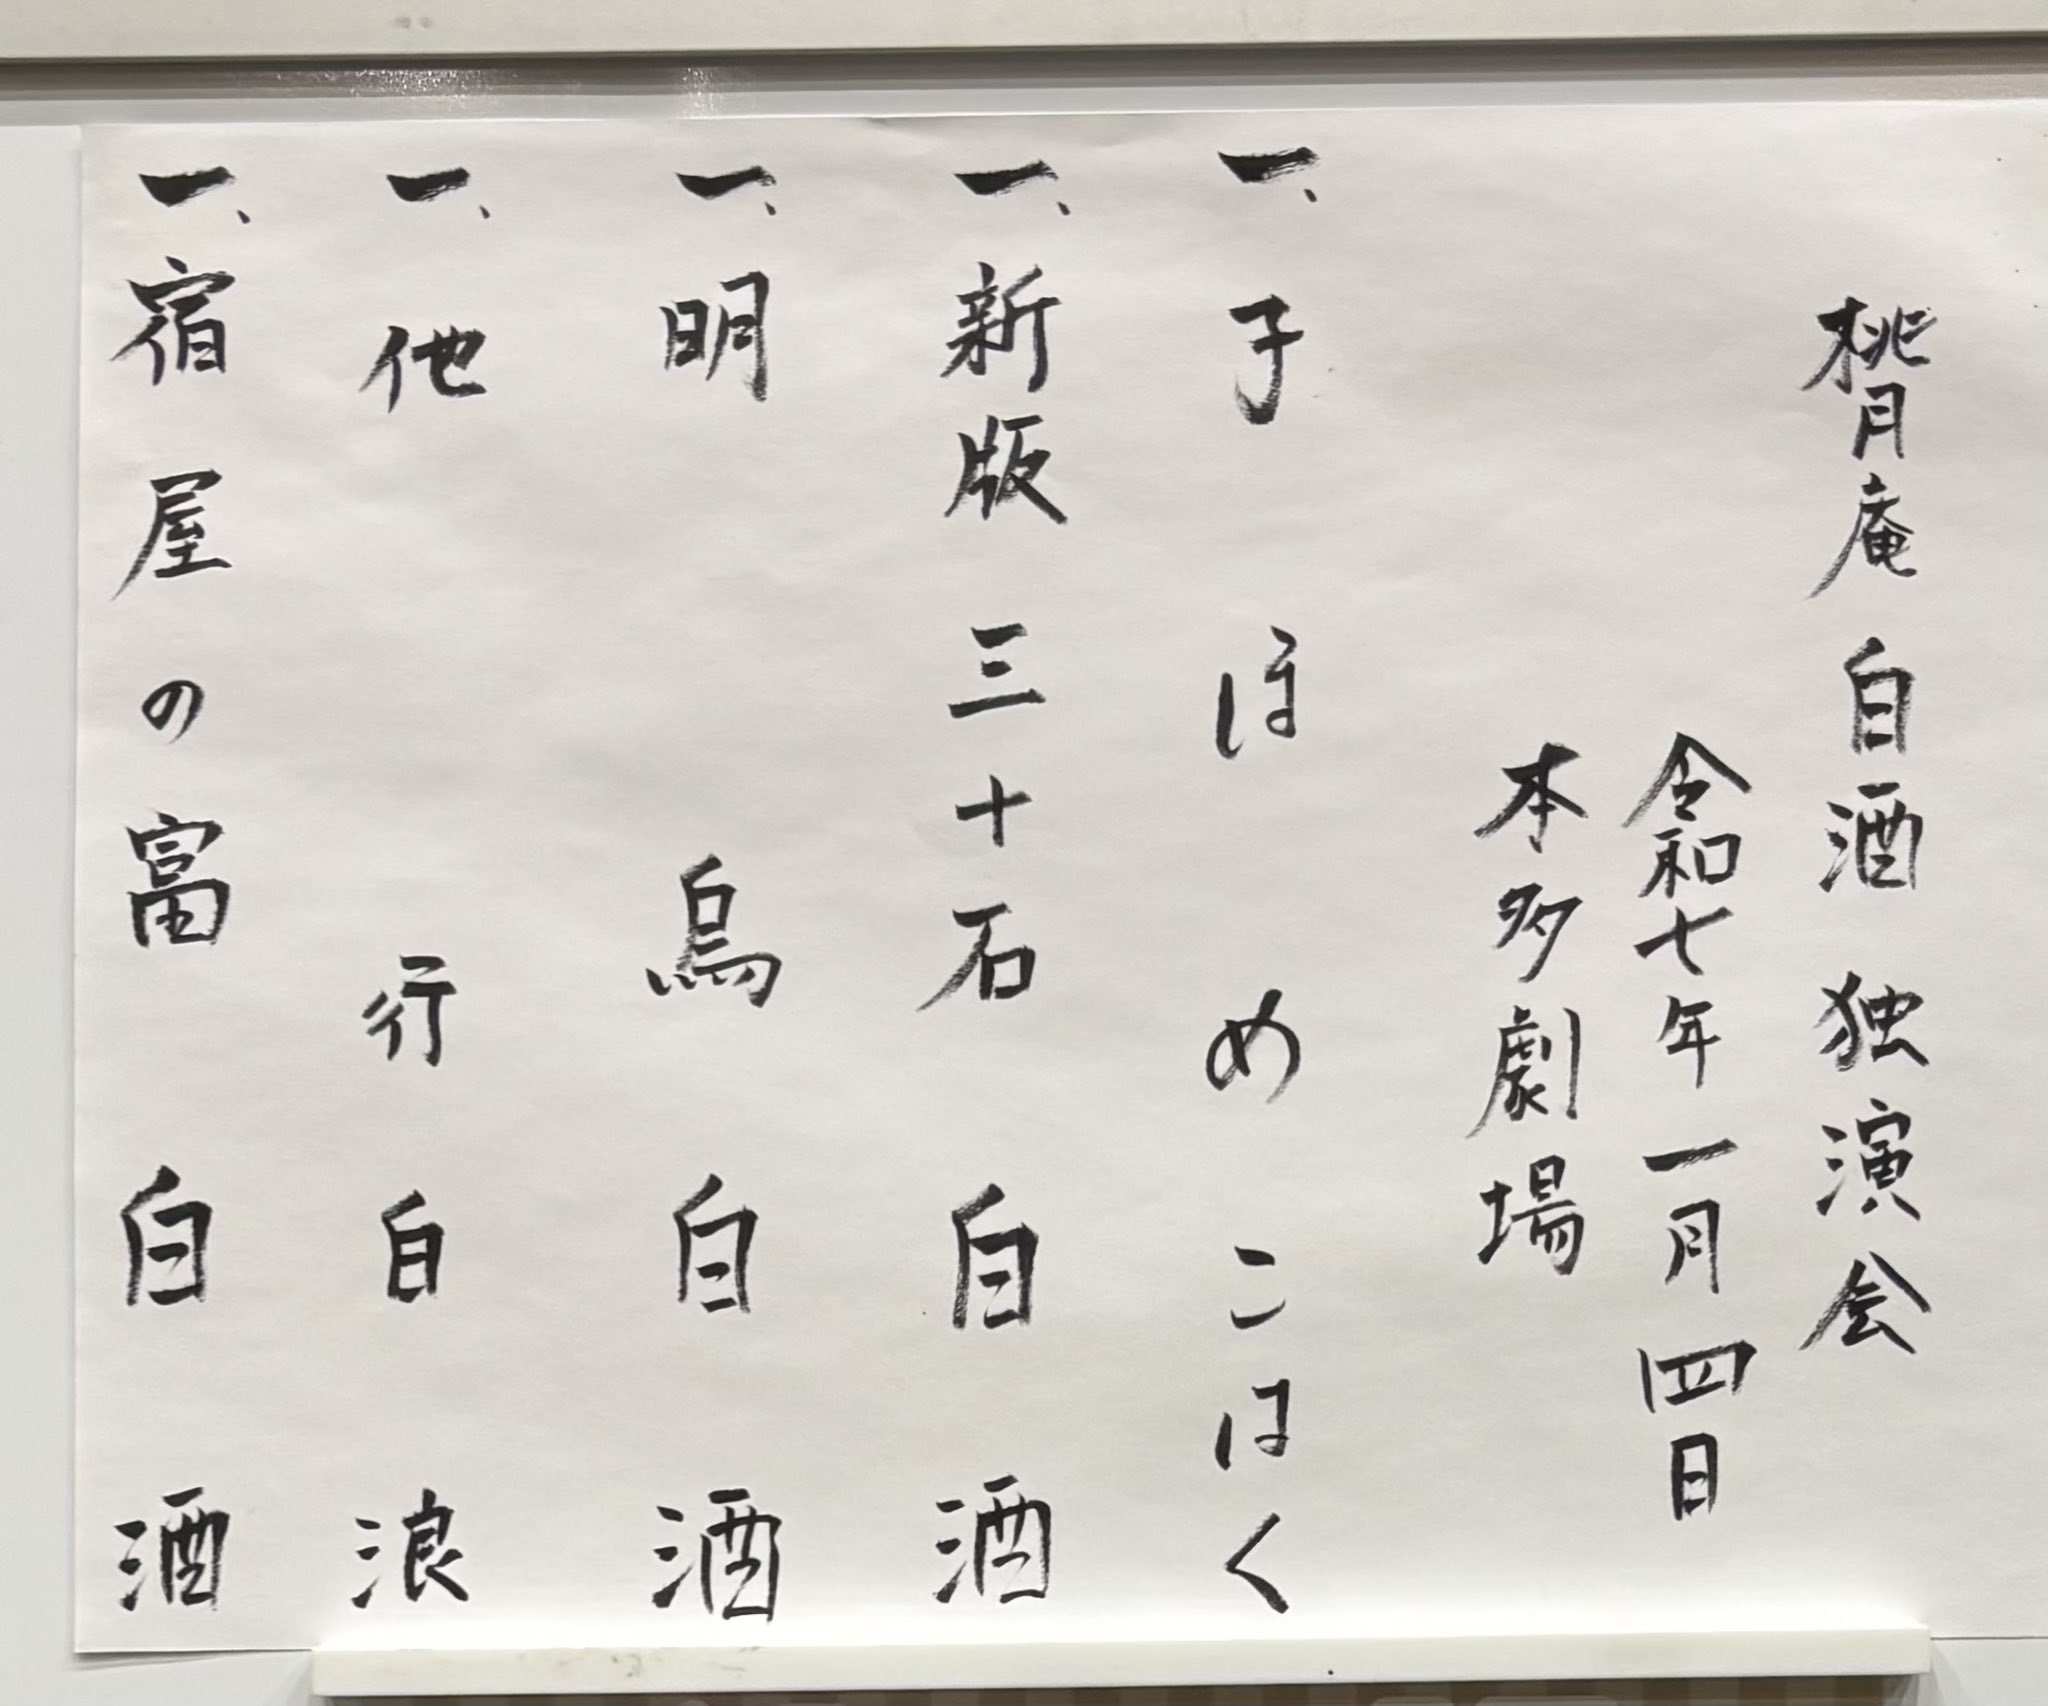 桃月庵白酒独演会
令和七年一月四日
本多劇場
一、子ほめ こはく
一、新版三十石 白酒
一、明烏 白酒
一、他行 白浪
一、宿屋の富 白酒